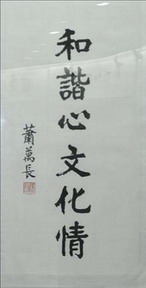 和諧心文化情
蕭萬長